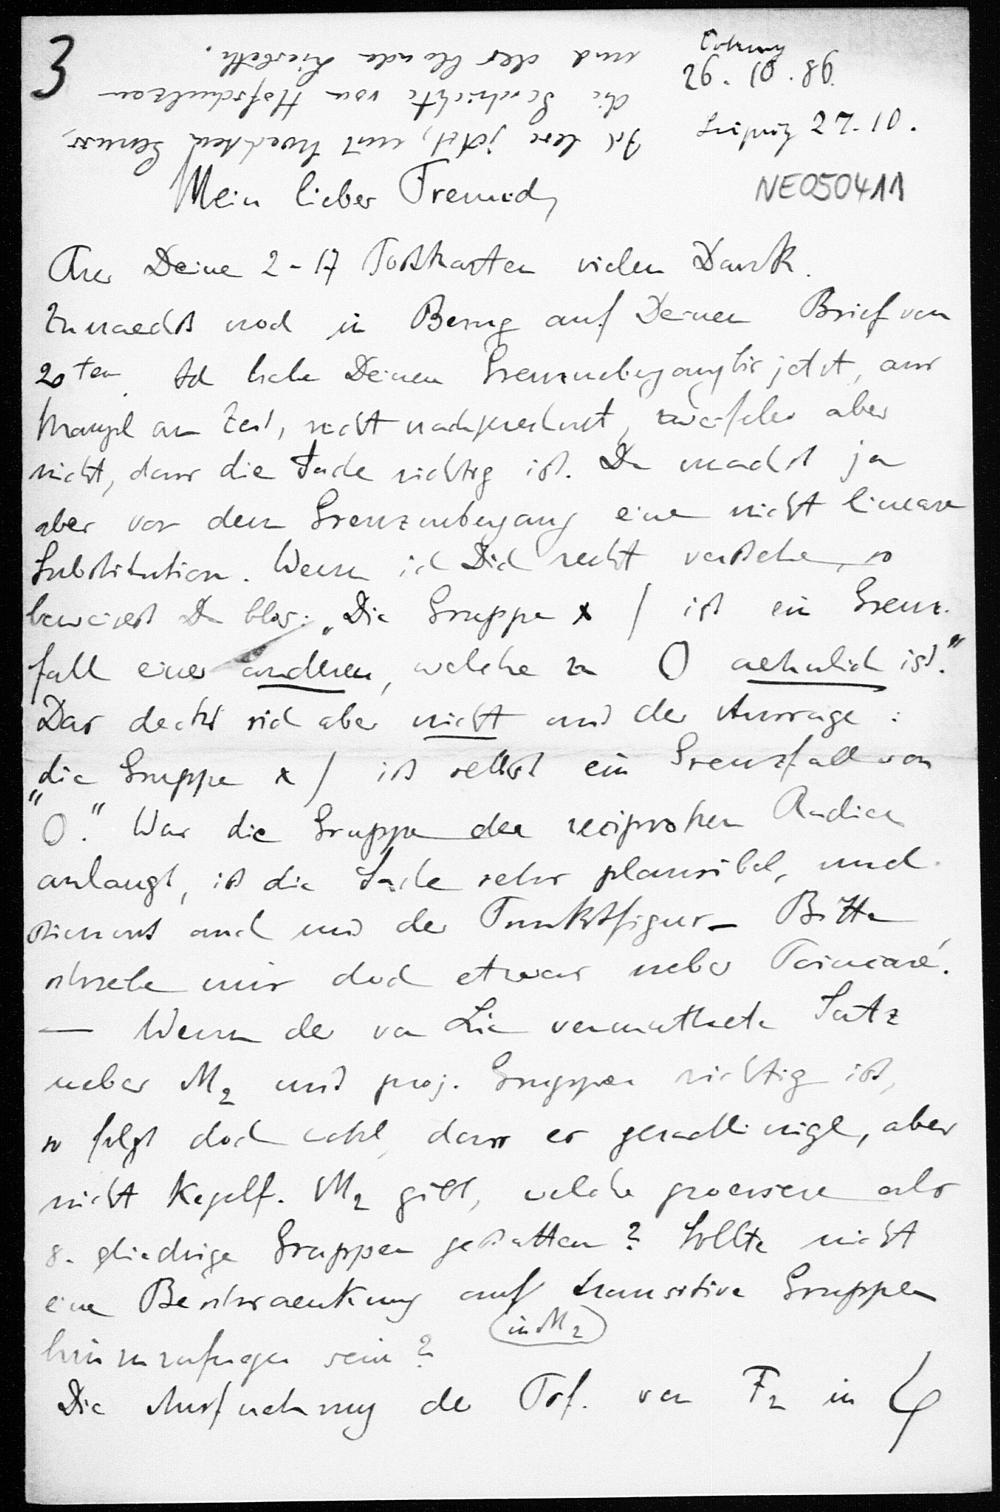 3
Coburg
26.10.86.
Leipzig 27.10.
NE050411
Ich lese jetzt, mit hoechstem Genuss,
die Geschichte von Hofschulzen
und der blonden Lisbeth.
Mein lieber Freund,
Fuer Deine 2-17 Postkarten vielen Dank.
Zunaechst noch in Bezug auf Deinen Brief vom
20ten. Ich habe Deinen Grenzuebergang bis jetzt, aus
Mangel an Zeit, nicht nachgerechnet, zweifle aber
nicht, dass die Sache richtig ist. Du machst ja
aber vor dem Grenzuebergang eine nicht lineare
Substitution. Wenn ich Dich recht verstehe, so
beweisest Du blos: „Die Gruppe x / ist ein Grenz-
fall einer anderen, welche zu O aehnlich ist.“
Das deckt sich aber nicht mit der Aussage:
„die Gruppe x / ist selbst ein Grenzfall von
O.“ Was die Gruppe der reciproken Radien
anlangt, ist die Sache sehr plausibel, und
stimmt auch mit der Punktfigur – Bitte
schreibe mir doch etwas ueber Poincaré.
— Wenn der von Lie vermuthete Satz
ueber M2 und proj. Gruppen richtig ist,
so folgt doch wohl, dass es geradlinige, aber
nicht Kegelf. M2 gibt, welche groessere als
8. gliedrige Gruppen gestatten? Sollte nicht
eine Beschraenkung auf transitive Gruppen
(in M2)
hinzuzufuegen sein?
Die Ausfuehrung der Tsf. von F2 in